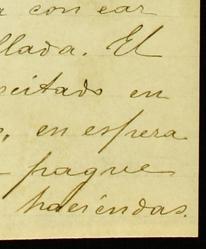 con car
llada. El
citado en
, en espera
pague
haciendas.